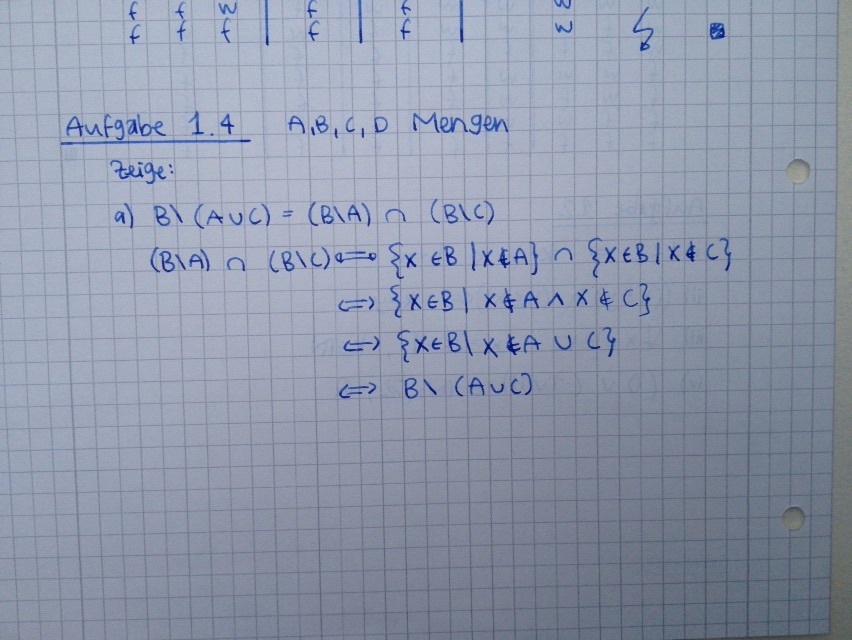 f f w | f | f | w
f f f | f | f | w ↯ ■
Aufgabe 1.4 A,B,C,D Mengen
Zeige:
a) B\(A∪C) = (B\A) ∩ (B\C)
(B\A) ∩ (B\C) ⟺ {x ∈B | x∉A} ∩ {x∈B | x∉C}
⟺ {x∈B | x∉A ∧ x∉C}
⟺ {x∈B | x∉A ∪ C}
⟺ B\ (A∪C)